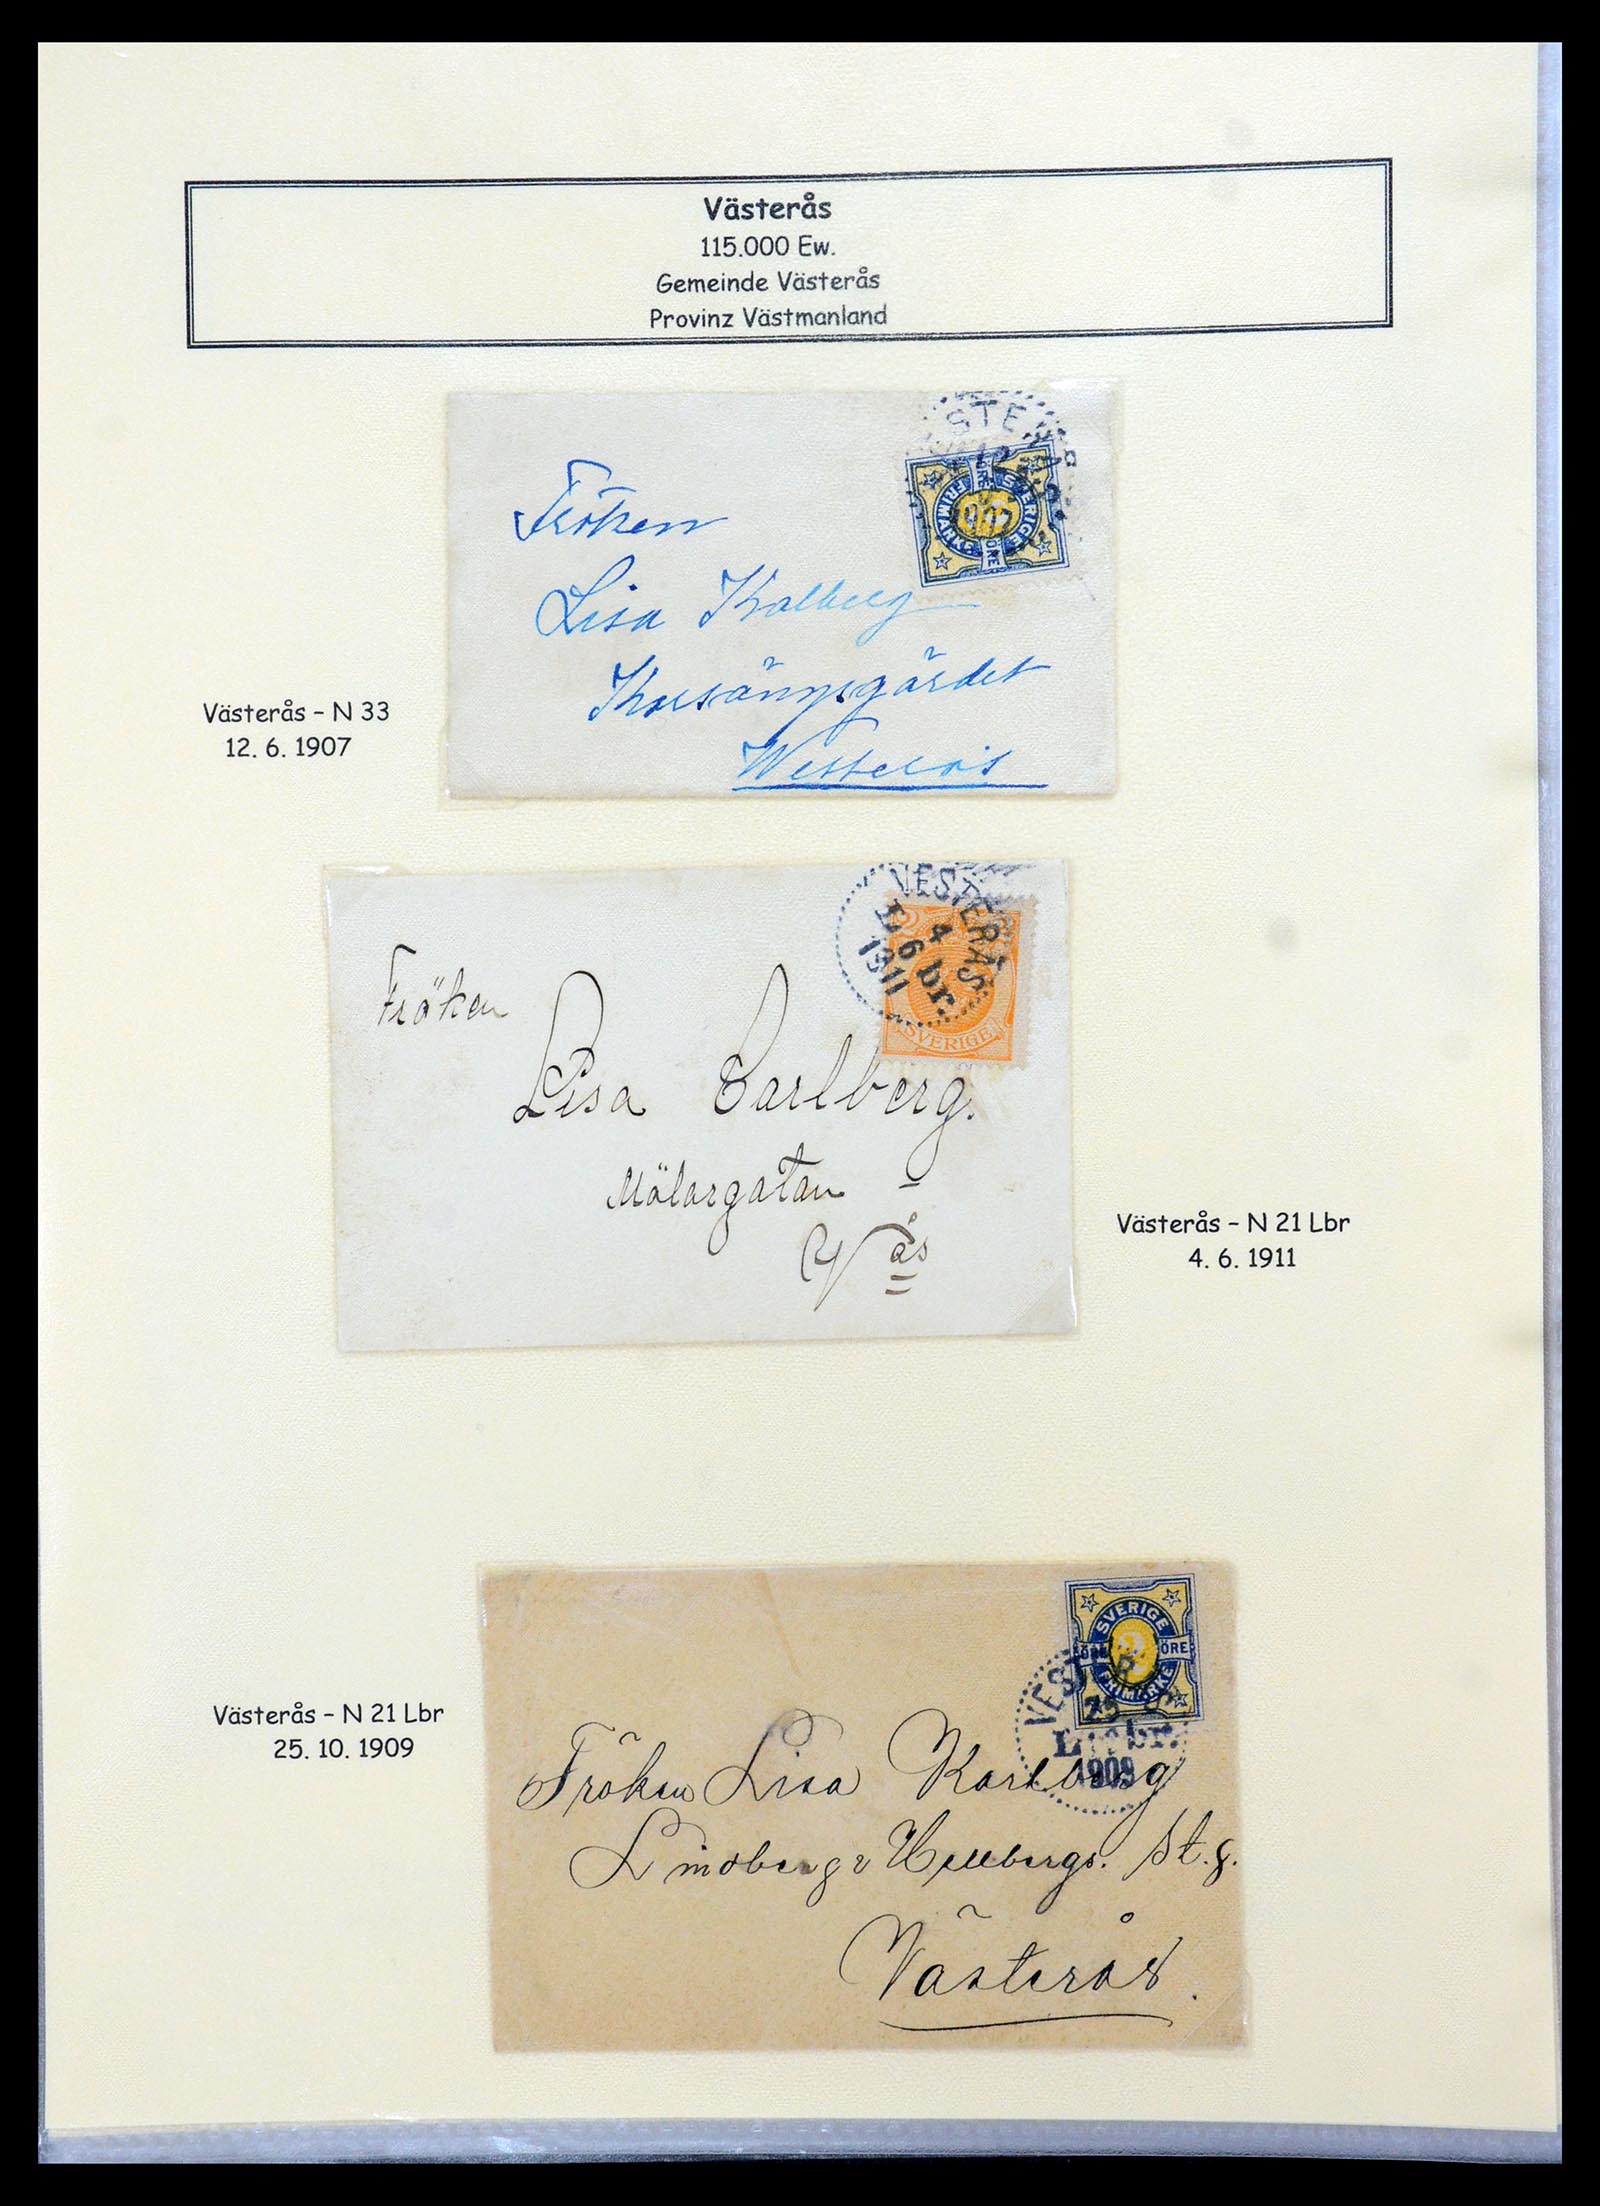 Västerås
115.000 Ew.
Gemeinde Västerås
Provinz Västmanland
1907
SVERIGE
FRIMÄRKE
ÖRE
ÖRE
Fröken
Lisa Kalberg
Westerås
Västerås – N 33
12. 6. 1907
VESTERÅS
4
L 6 br.
1911
SVERIGE
Fröken
Lisa Carlberg.
Mälargatan
V/ås
Västerås – N 21 Lbr
4. 6. 1911
SVERIGE
ÖRE 2 ÖRE
FRIMÄRKE
25
1909
Fröken Lisa Karlberg
Västerås.
Västerås – N 21 Lbr
25. 10. 1909